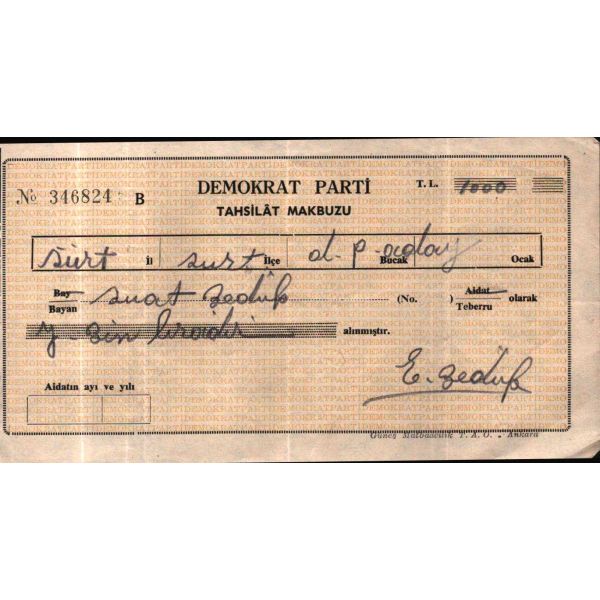 № 346824 B DEMOKRAT PARTİ T. L. 1000
TAHSİLÂT MAKBUZU
Siirt İl Siirt İlçe d. p. aday Bucak Ocak
Bay suat (No. ) Aidat olarak
Bayan Teberru
alınmıştır.
Aidatın ayı ve yılı
E.
Güneş Matbaacılık T. A. O. - Ankara